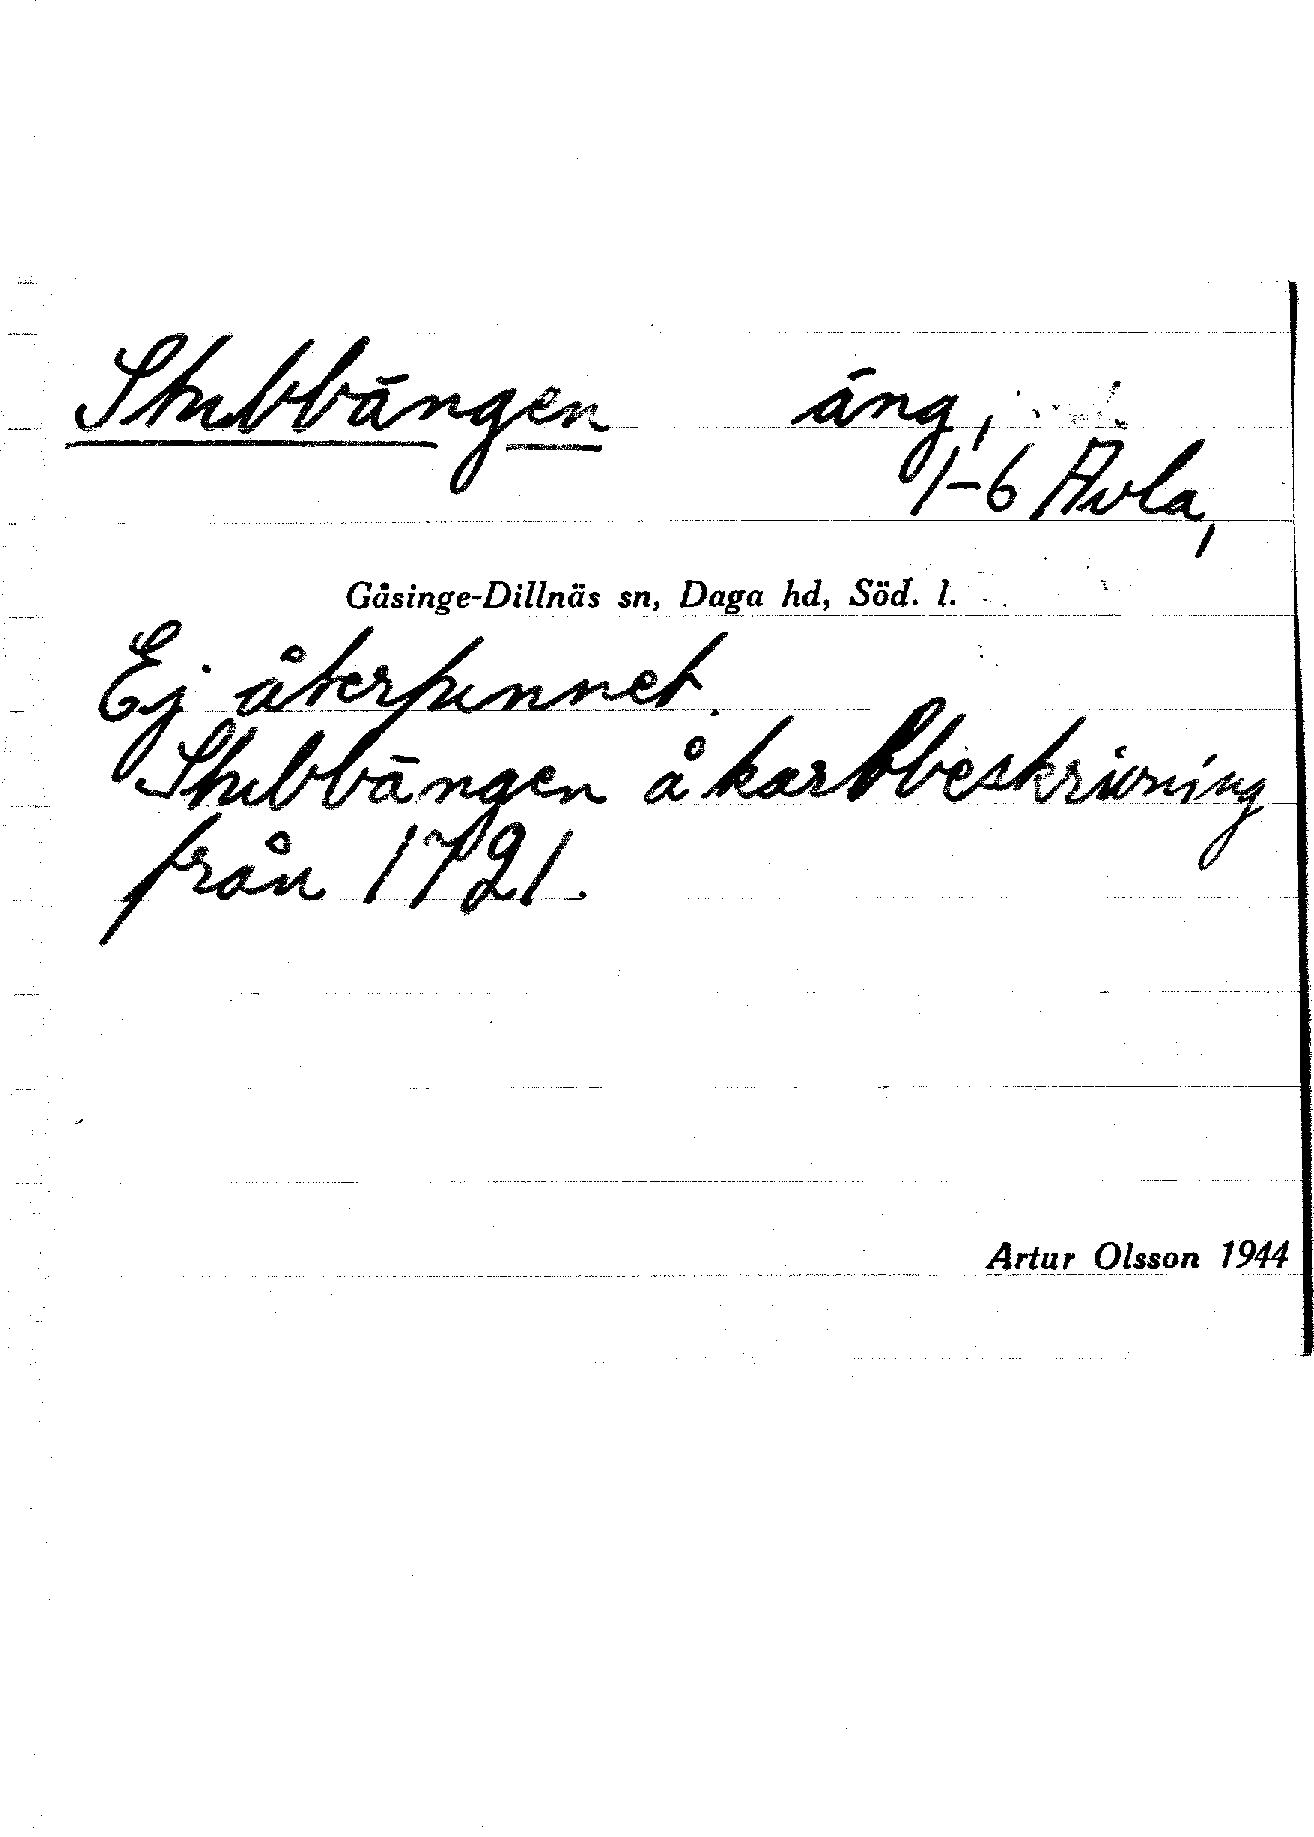 Stubbängen äng,
1-6 Avla,
Gåsinge-Dillnäs sn, Daga hd, Söd. l.
Ej återfunnet.
Stubbängen å kartbeskrivning
från 1721.
Artur Olsson 1944